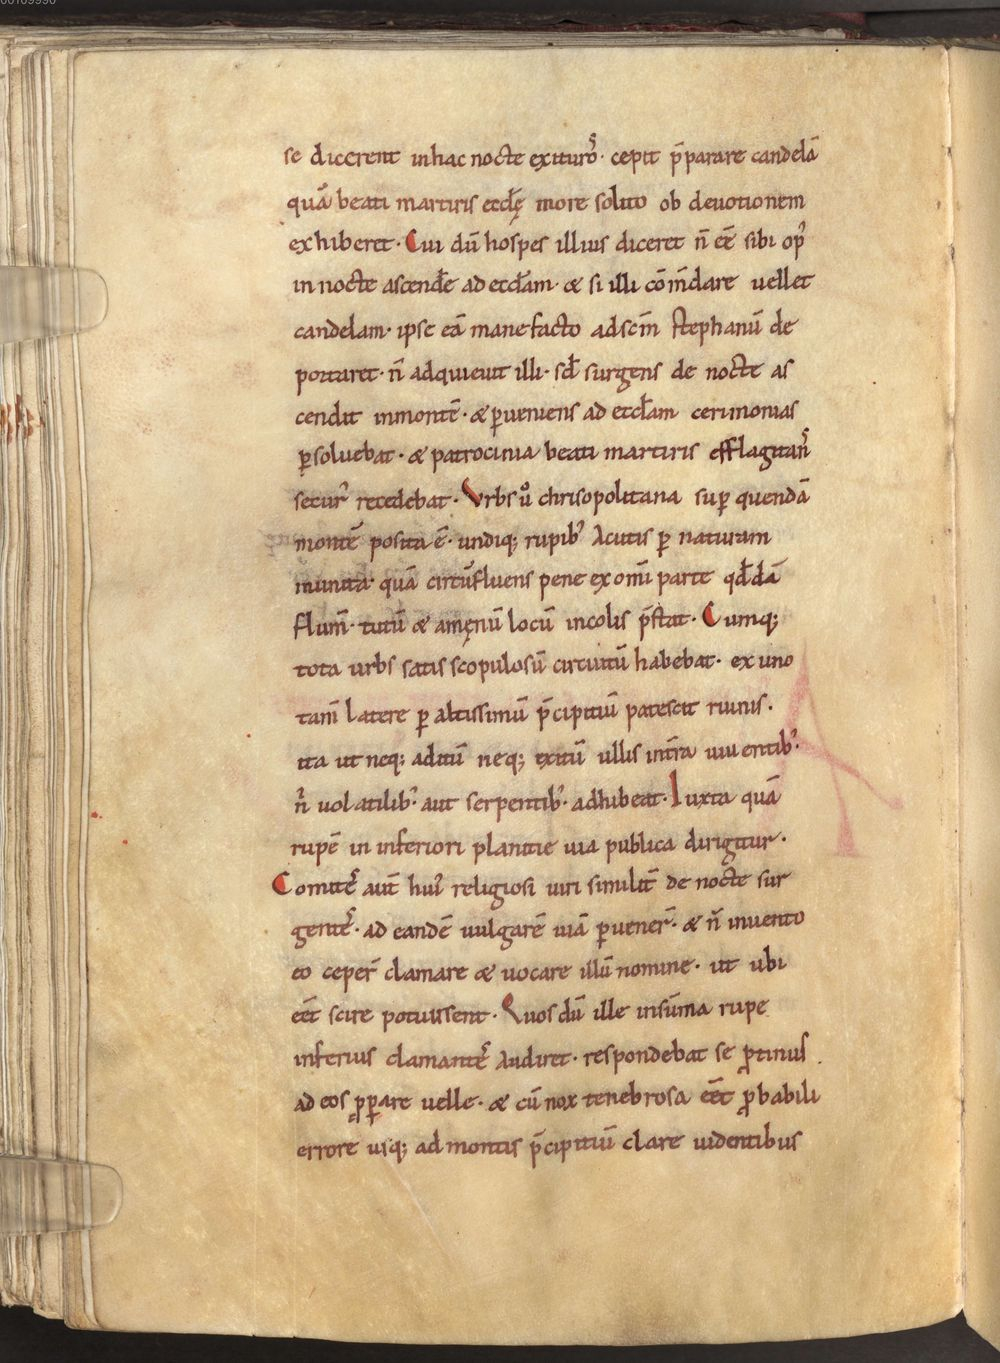 00109990
se dicerent inhac nocte exituros̄. cepit p̄parare candelā
quā beati martiris eccłę more solito ob deuotionem
exhiberet. Cui dū hospes illius diceret n̄ eē̄ sibi op᾽
in nocte ascendr̄e ad eccłam. & si illi cōm̄dare vellet
candelam. ipse eā mane facto ad scm̄ stephanū de
portaret. n̄ adquieuit illi. sed̄ surgens de nocte as
cendit inmontē. & ꝑueniens ad eccłam cerimonias
ꝑsoluebat. & patrocinia beati martiris efflagitans̄
secur᾽ recedebat. Vrbs uͦ chrisopolitana suꝑ quendā
montē posita ē. undiq; rupib᾽ Acutis ꝑ naturam
munita. quā circūfluens pene ex omī parte qd̄dā
flum̄. tutū & amęnū locū incolis p̄stat. Cumq;
tota urbs satis scopulosū circuitū habebat. ex uno
tam̄ latere ꝑ altissimū p̄cipitiū patescit ruinis.
ita ut neq; aditū neq; exitū ullis intra uiuentib᾽.
n̄ uolatilib᾽ aut serpentib᾽. adhibeat. Iuxta quā
rupē in inferiori planitie uia publica dirigitur.
Comites̄ aut̄ hui᾽ religiosi uiri similit̄ de nocte sur
gentes̄. ad eandē uulgarē uiā ꝑuener̄. & n̄ inuento
eo ceper̄ clamare & uocare illū nomine. ut ubi
eēt̄ scire potuissent. Quos dū ille insūma rupe
inferius clamantes̄ Audiret. respondebat se ꝓtinus
ad eos ꝓꝑare uelle. & cū nox tenebrosa eēt̄ ꝓbabili
errore usq; ad montis p̄cipitiū clare uidentibus